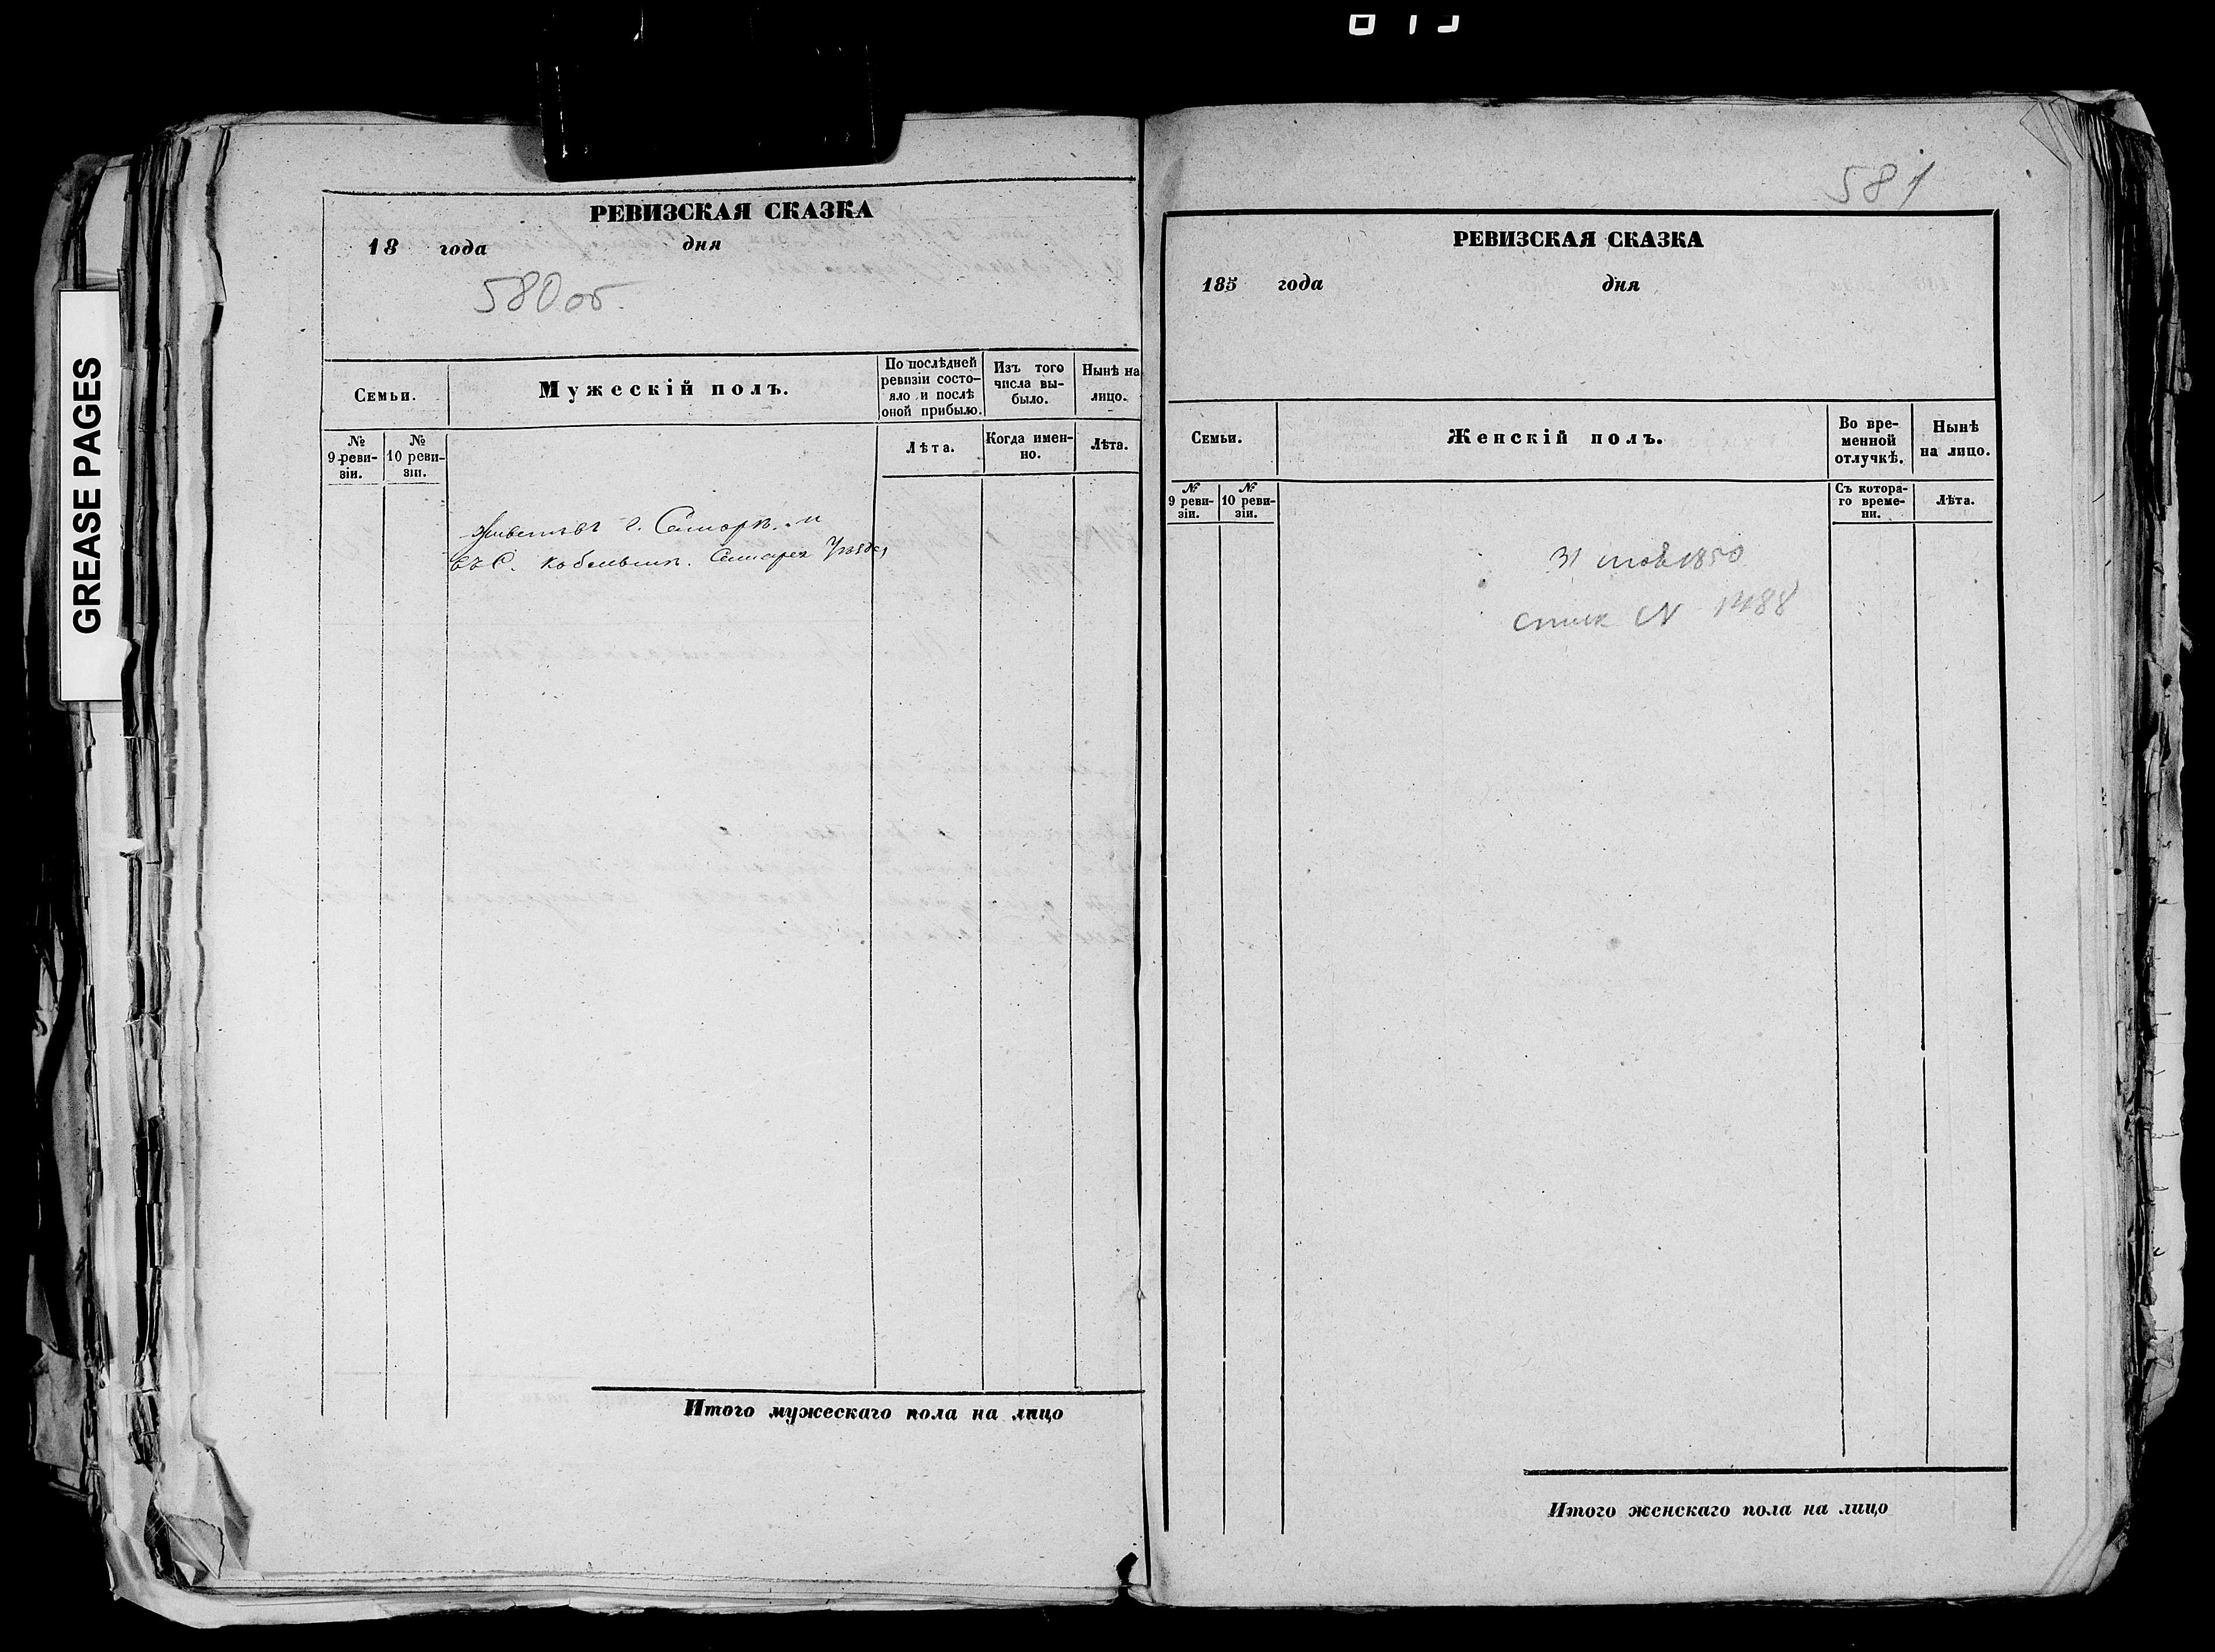 GREASE PAGES
РЕВИЗСКАЯ СКАЗКА
18 года дня
580 об.
Семьи.
Мужескій полъ.
По послѣдней ревизіи состо-
яло и послѣ
оной прибыло.
Изъ того
числа вы-
было.
Нынѣ на
лицо.
№
9 реви-
зіи.
№
10 реви-
зіи.
Лѣта.
Когда имен-
но.
Лѣта.
г. Самарѣ. и
въ С. Самарск Уѣзда
Итого мужескаго пола на лицо
581
РЕВИЗСКАЯ СКАЗКА
185 года дня
Семьи.
Женскій полъ.
Во вре-
менной
отлучкѣ.
Нынѣ
на лицо.
№
9 реви-
зіи.
№
10 реви-
зіи.
Съ котора-
го време-
ни.
Лѣта.
31 1850
N 1488
Итого женскаго пола на лицо